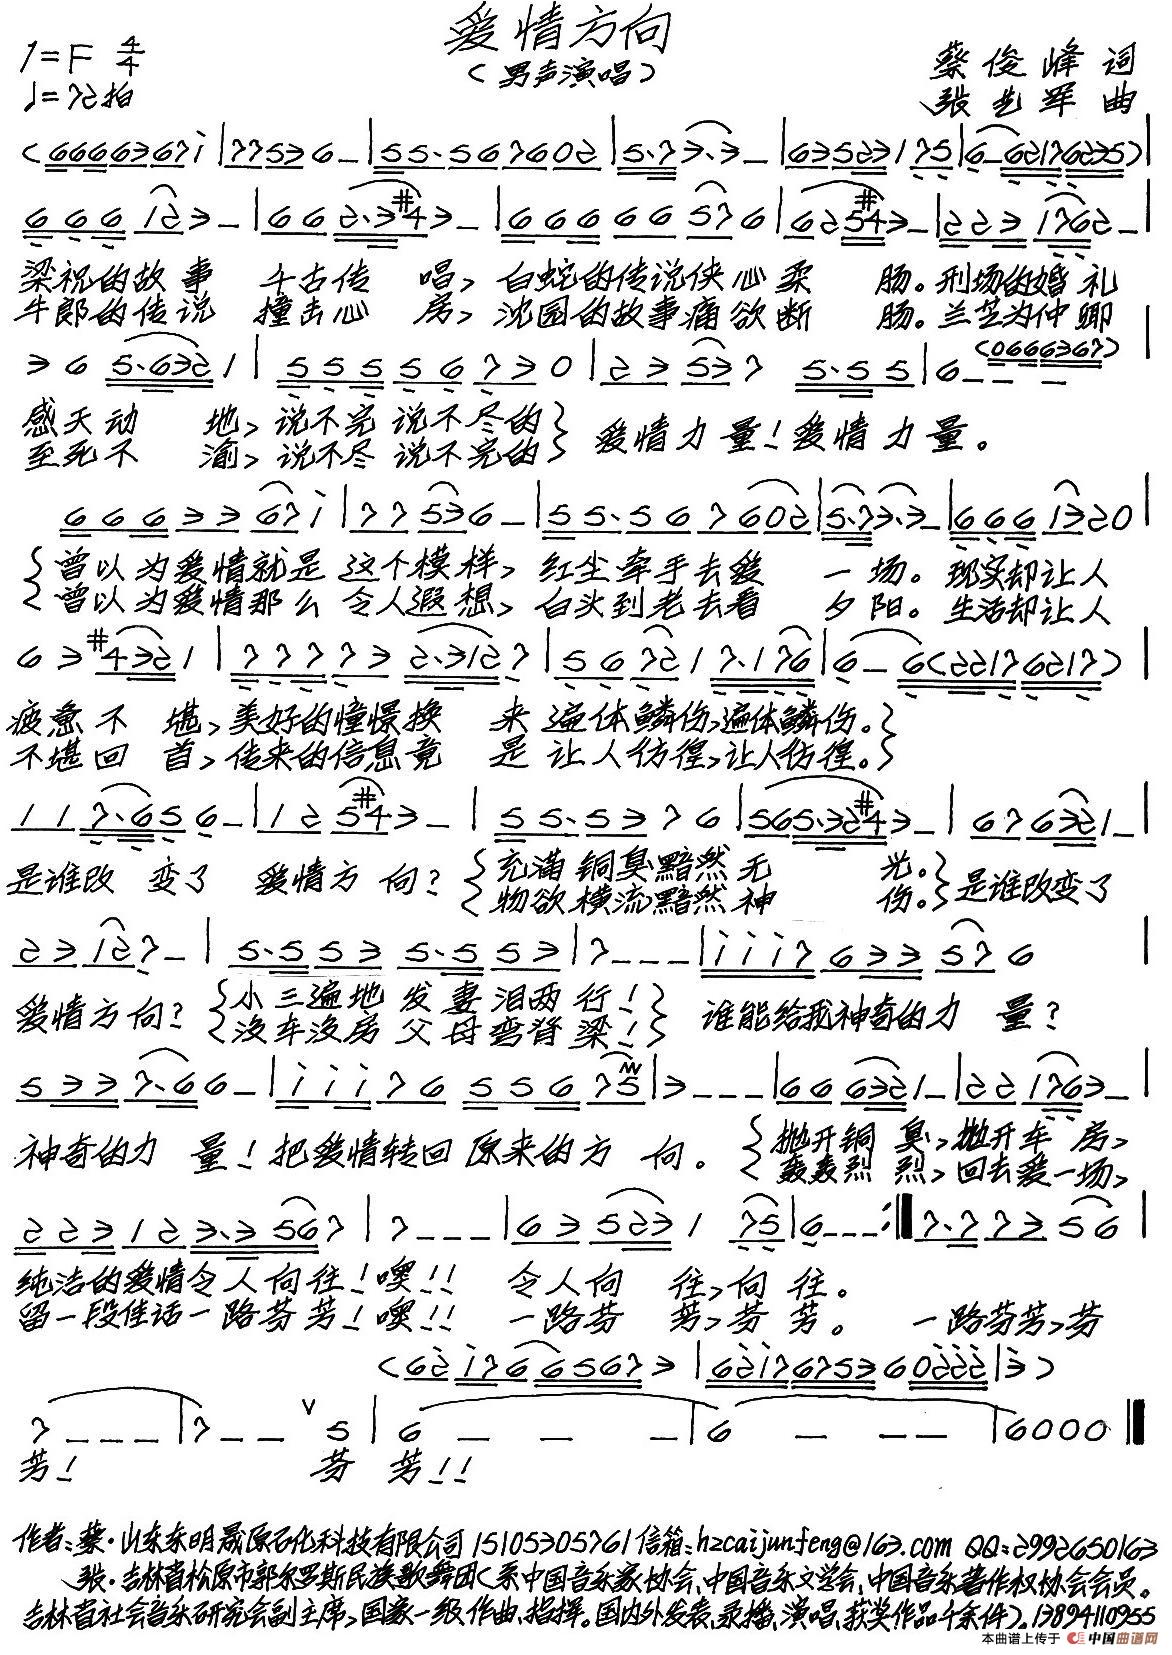 爱情方向
(男声演唱)
1=F 4/4
♩=72拍
蔡俊峰 词
张先军 曲
(66663671̇|77536-|55·567602|5·73·3-|63523175|6-62176235)|
666123-|662·3#43-|66666576|6254#3-|2231762-|
梁祝的故事 千古传 唱,白蛇的传说侠心柔 肠。刑场的婚礼
牛郎的传说 撞击心 房,沈园的故事痛欲断 肠。兰芝为仲卿
(0666367)
365·6321|55556730|23537 5·55|6---|
感天动 地,说不完 说不尽的}爱情力量!爱情力量。
至死不 渝,说不尽 说不完的}
66633671̇|77536-|55·567602|5·73·3-|6661320|
{曾以为爱情就是 这个模样,红尘牵手去爱 一场。现实却让人
{曾以为爱情那么 令人遐想,白头到老去看 夕阳。生活却让人
63#4321|777732·3127|567217·176|6-6(22176217)|
疲惫不 堪,美好的憧憬换 来 遍体鳞伤,遍体鳞伤。}
不堪回 首,传来的信息竟 是 让人彷徨,让人彷徨。}
117·656-|125#43-|55·5376|565·32#43-|676321-|
是谁改 变了 爱情方 向?{充满铜臭黯然无 光。}是谁改变了
{物欲横流黯然神 伤。}
23127-|5·553 5·553|7---|1̇1̇1̇7633576|
爱情方向?{小三遍地 发妻泪两行!}谁能给我神奇的力 量?
{没车没房 父母弯脊梁!}
5337·66-|1̇1̇1̇7655675|3---|666321-|221763-|
神奇的力 量!把爱情转回原来的方 向。{抛开铜 臭,抛开车 房,
{轰轰烈 烈,回去爱一场,
223123·3567|7---|63523175|6---:‖7·777356|
纯洁的爱情令人向往!噢!! 令人向 往,向往。
留一段佳话一路芬芳!噢!! 一路芬 芳,芬芳。 一路芬芳,芬
(62̇1̇7665673|62̇1̇76753602̇2̇2̇|3̇)
7---|7--∨5|6---|6---|6000‖
芳! 芬 芳!!
作者:蔡·山东东明晟原石化科技有限公司15105305761信箱:hzcaijunfeng@163.com QQ:2992650163
张·吉林省松原市郭尔罗斯民族歌舞团(系中国音乐家协会、中国音乐文学会、中国音乐著作权协会会员。
吉林省社会音乐研究会副主席,国家一级作曲、指挥。国内外发表、录播、演唱、获奖作品千余件)。13894110955
本曲谱上传于 中国曲谱网